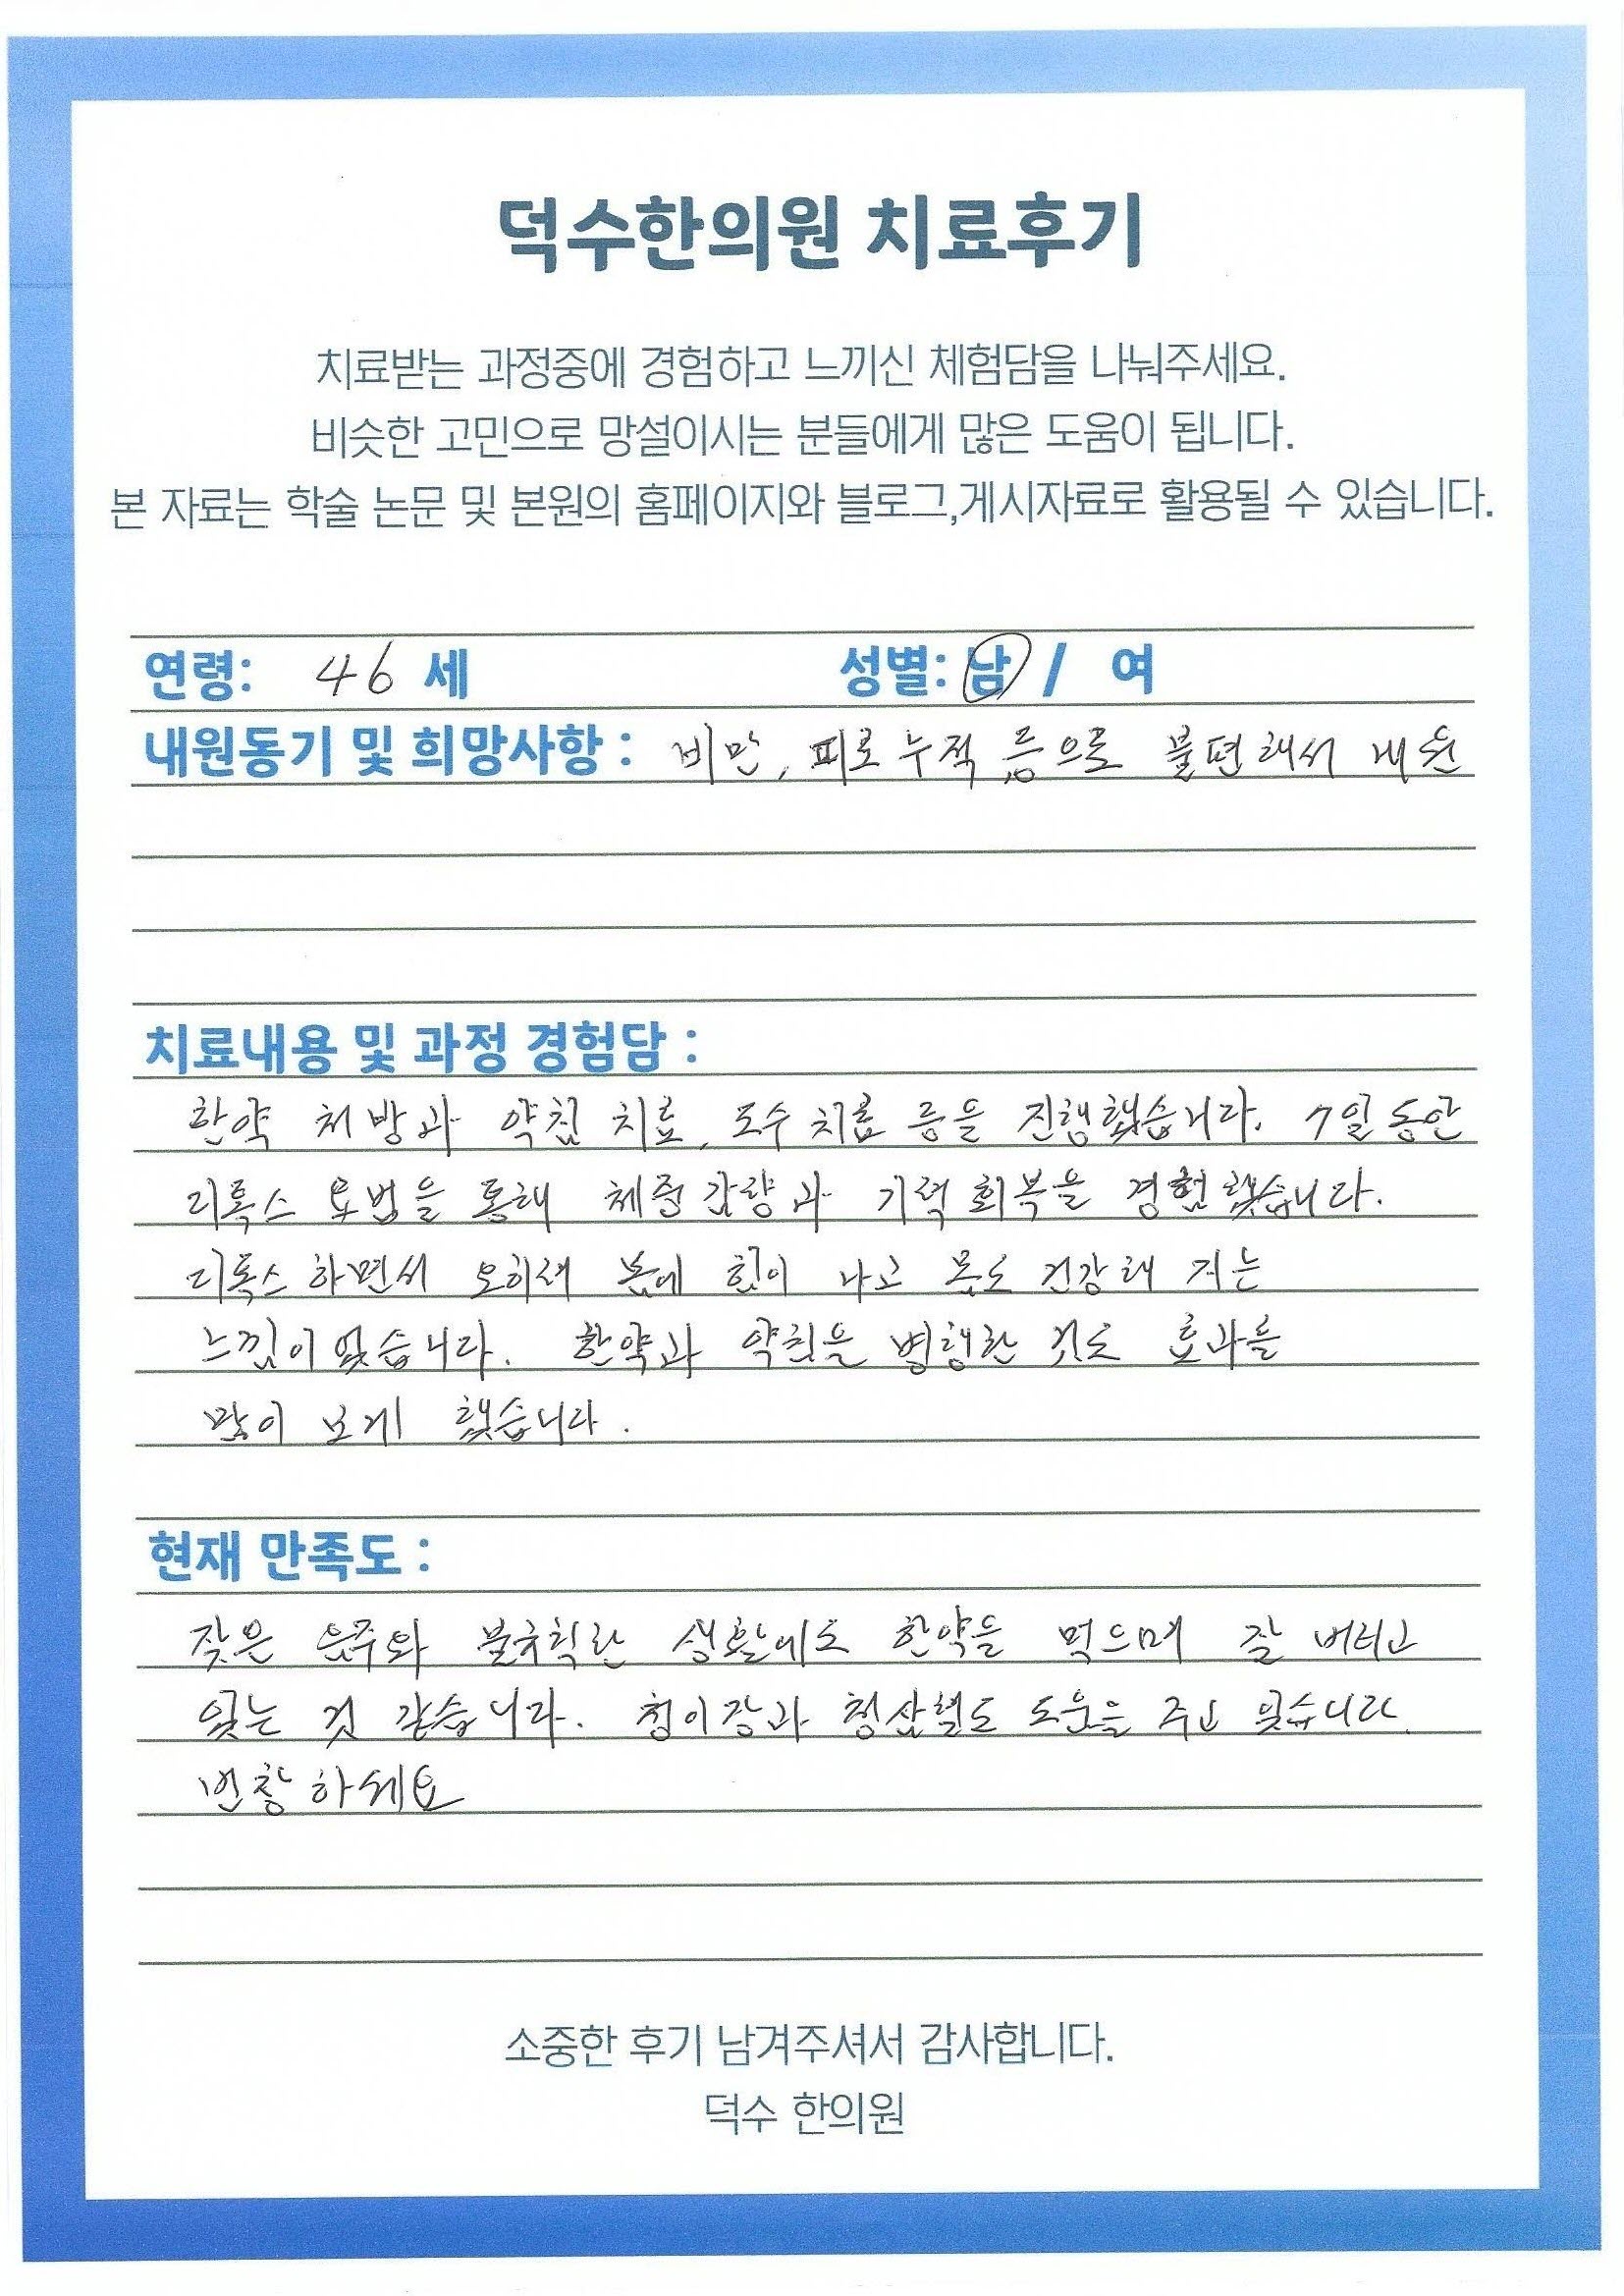 덕수한의원 치료후기
치료받는 과정중에 경험하고 느끼신 체험담을 나눠주세요.
비슷한 고민으로 망설이시는 분들에게 많은 도움이 됩니다.
본 자료는 학술 논문 및 본원의 홈페이지와 블로그,게시자료로 활용될 수 있습니다.
연령: 46 세 성별: 남 / 여
내원동기 및 희망사항 : 비만, 피로누적 등으로 불편해서 내원
치료내용 및 과정 경험담 :
한약 처방과 약침 치료, 도수치료 등을 진행했습니다. 7일동안
디톡스 요법을 통해 체중감량과 기력회복을 경험했습니다.
디톡스 하면서 오히려 몸에 힘이 나고 몸도 건강해 지는
느낌이었습니다. 한약과 약침을 병행한 것도 효과를
많이 보게 했습니다.
현재 만족도 :
잦은 음주와 불규칙한 생활에도 한약을 먹으며 잘 버티고
있는 것 같습니다. 청이장과 청상혈도 도움을 주고 있습니다.
번창하세요
소중한 후기 남겨주셔서 감사합니다.
덕수 한의원